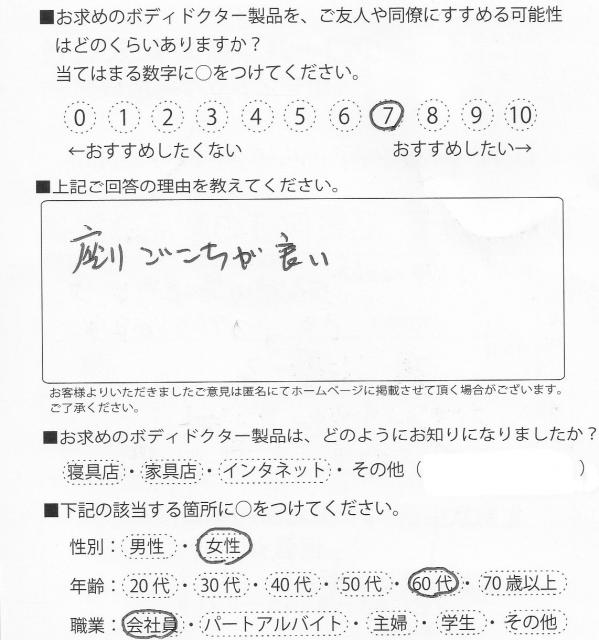 ■お求めのボディドクター製品を、ご友人や同僚にすすめる可能性
はどのくらいありますか？
当てはまる数字に○をつけてください。
0 1 2 3 4 5 6 7 8 9 10
←おすすめしたくない おすすめしたい→
■上記ご回答の理由を教えてください。
座り ごこちが 良い
お客様よりいただきましたご意見は匿名にてホームページに掲載させて頂く場合がございます。
ご了承ください。
■お求めのボディドクター製品は、どのようにお知りになりましたか？
寝具店・家具店・インタネット・その他（ ）
■下記の該当する箇所に○をつけてください。
性別：男性・女性
年齢：20代・30代・40代・50代・60代・70歳以上
職業：会社員・パートアルバイト・主婦・学生・その他